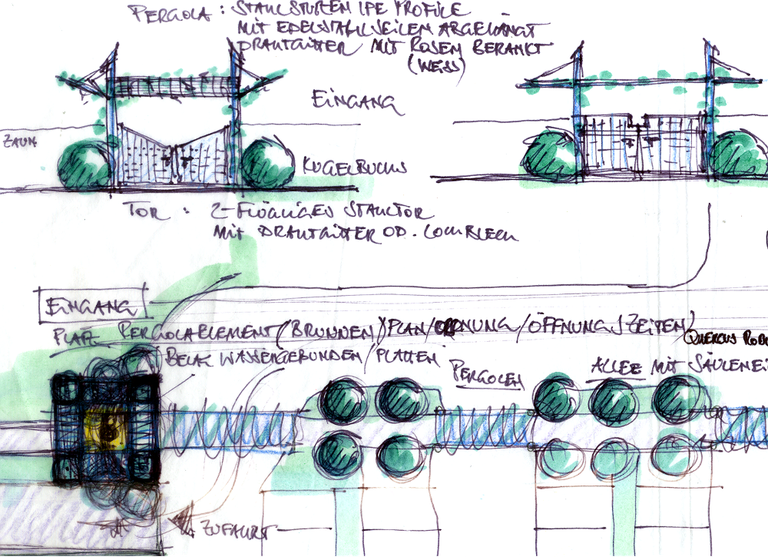 PERGOLA : STAHLSTÜTZEN IPE PROFILE
MIT EDELSTAHLSEILEN ABGEHÄNGT
DRAHTGITTER MIT ROSEN BERANKT
(WEISS)
EINGANG
ZAUN
KUGELBUCHS
TOR : 2-FLÜGLIGES STAHLTOR
MIT DRAHTGITTER OD. LOCHBLECH
EINGANG
PLATZ PERGOLAELEMENT (BRUNNEN) PLAN/ORDNUNG/ÖFFNUNGSZEITEN)
BELAG WASSERGEBUNDEN/PLATTEN
(QUERCUS
PERGOLEN
ALLEE MIT SÄULENEI
ZUFAHRT